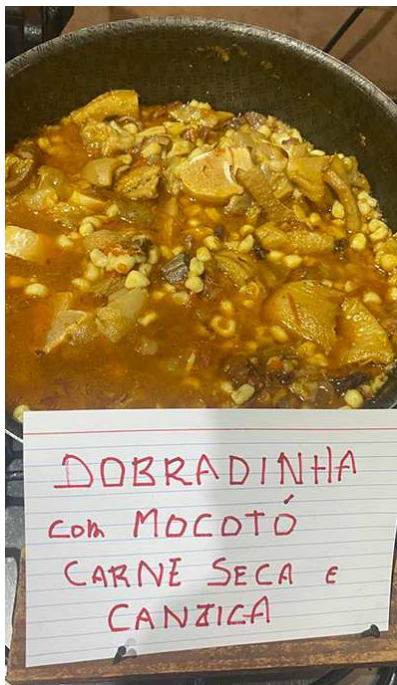 DOBRADINHA
com MOCOTÓ
CARNE SECA E
CANZICA